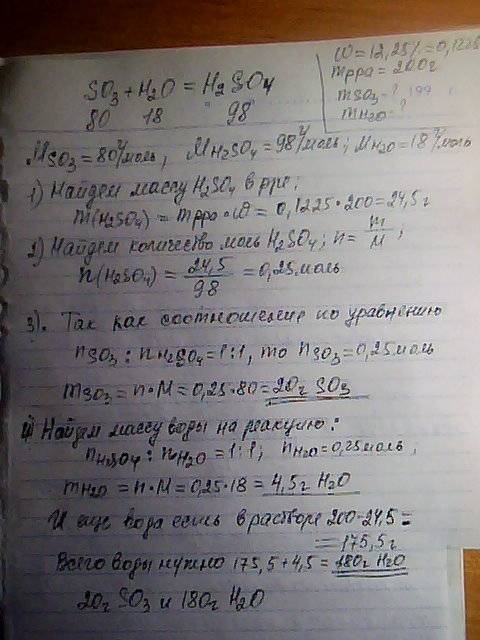 W = 12,25% = 0,1225
mрра = 200г
mSO3 = ?
mH2O = ?
SO3 + H2O = H2SO4
80 18 98
MSO3 = 80 г/моль, MH2SO4 = 98 г/моль; MH2O = 18 г/моль
1) Найдем массу H2SO4 в рре:
m(H2SO4) = mрра · W = 0,1225 · 200 = 24,5 г
2) Найдем количество моль H2SO4; n = m/M;
n(H2SO4) = 24,5/98 = 0,25 моль
3). Так как соотношение по уравнению
nSO3 : nH2SO4 = 1:1, то nSO3 = 0,25 моль
mSO3 = n · M = 0,25 · 80 = 20г SO3
4) Найдем массу воды на реакцию:
nH2SO4 : nH2O = 1:1; nH2O = 0,25 моль;
mH2O = n · M = 0,25 · 18 = 4,5г H2O
И еще вода есть в растворе 200-24,5 =
= 175,5г
Всего воды нужно 175,5 + 4,5 = 180г H2O
20г SO3 и 180г H2O